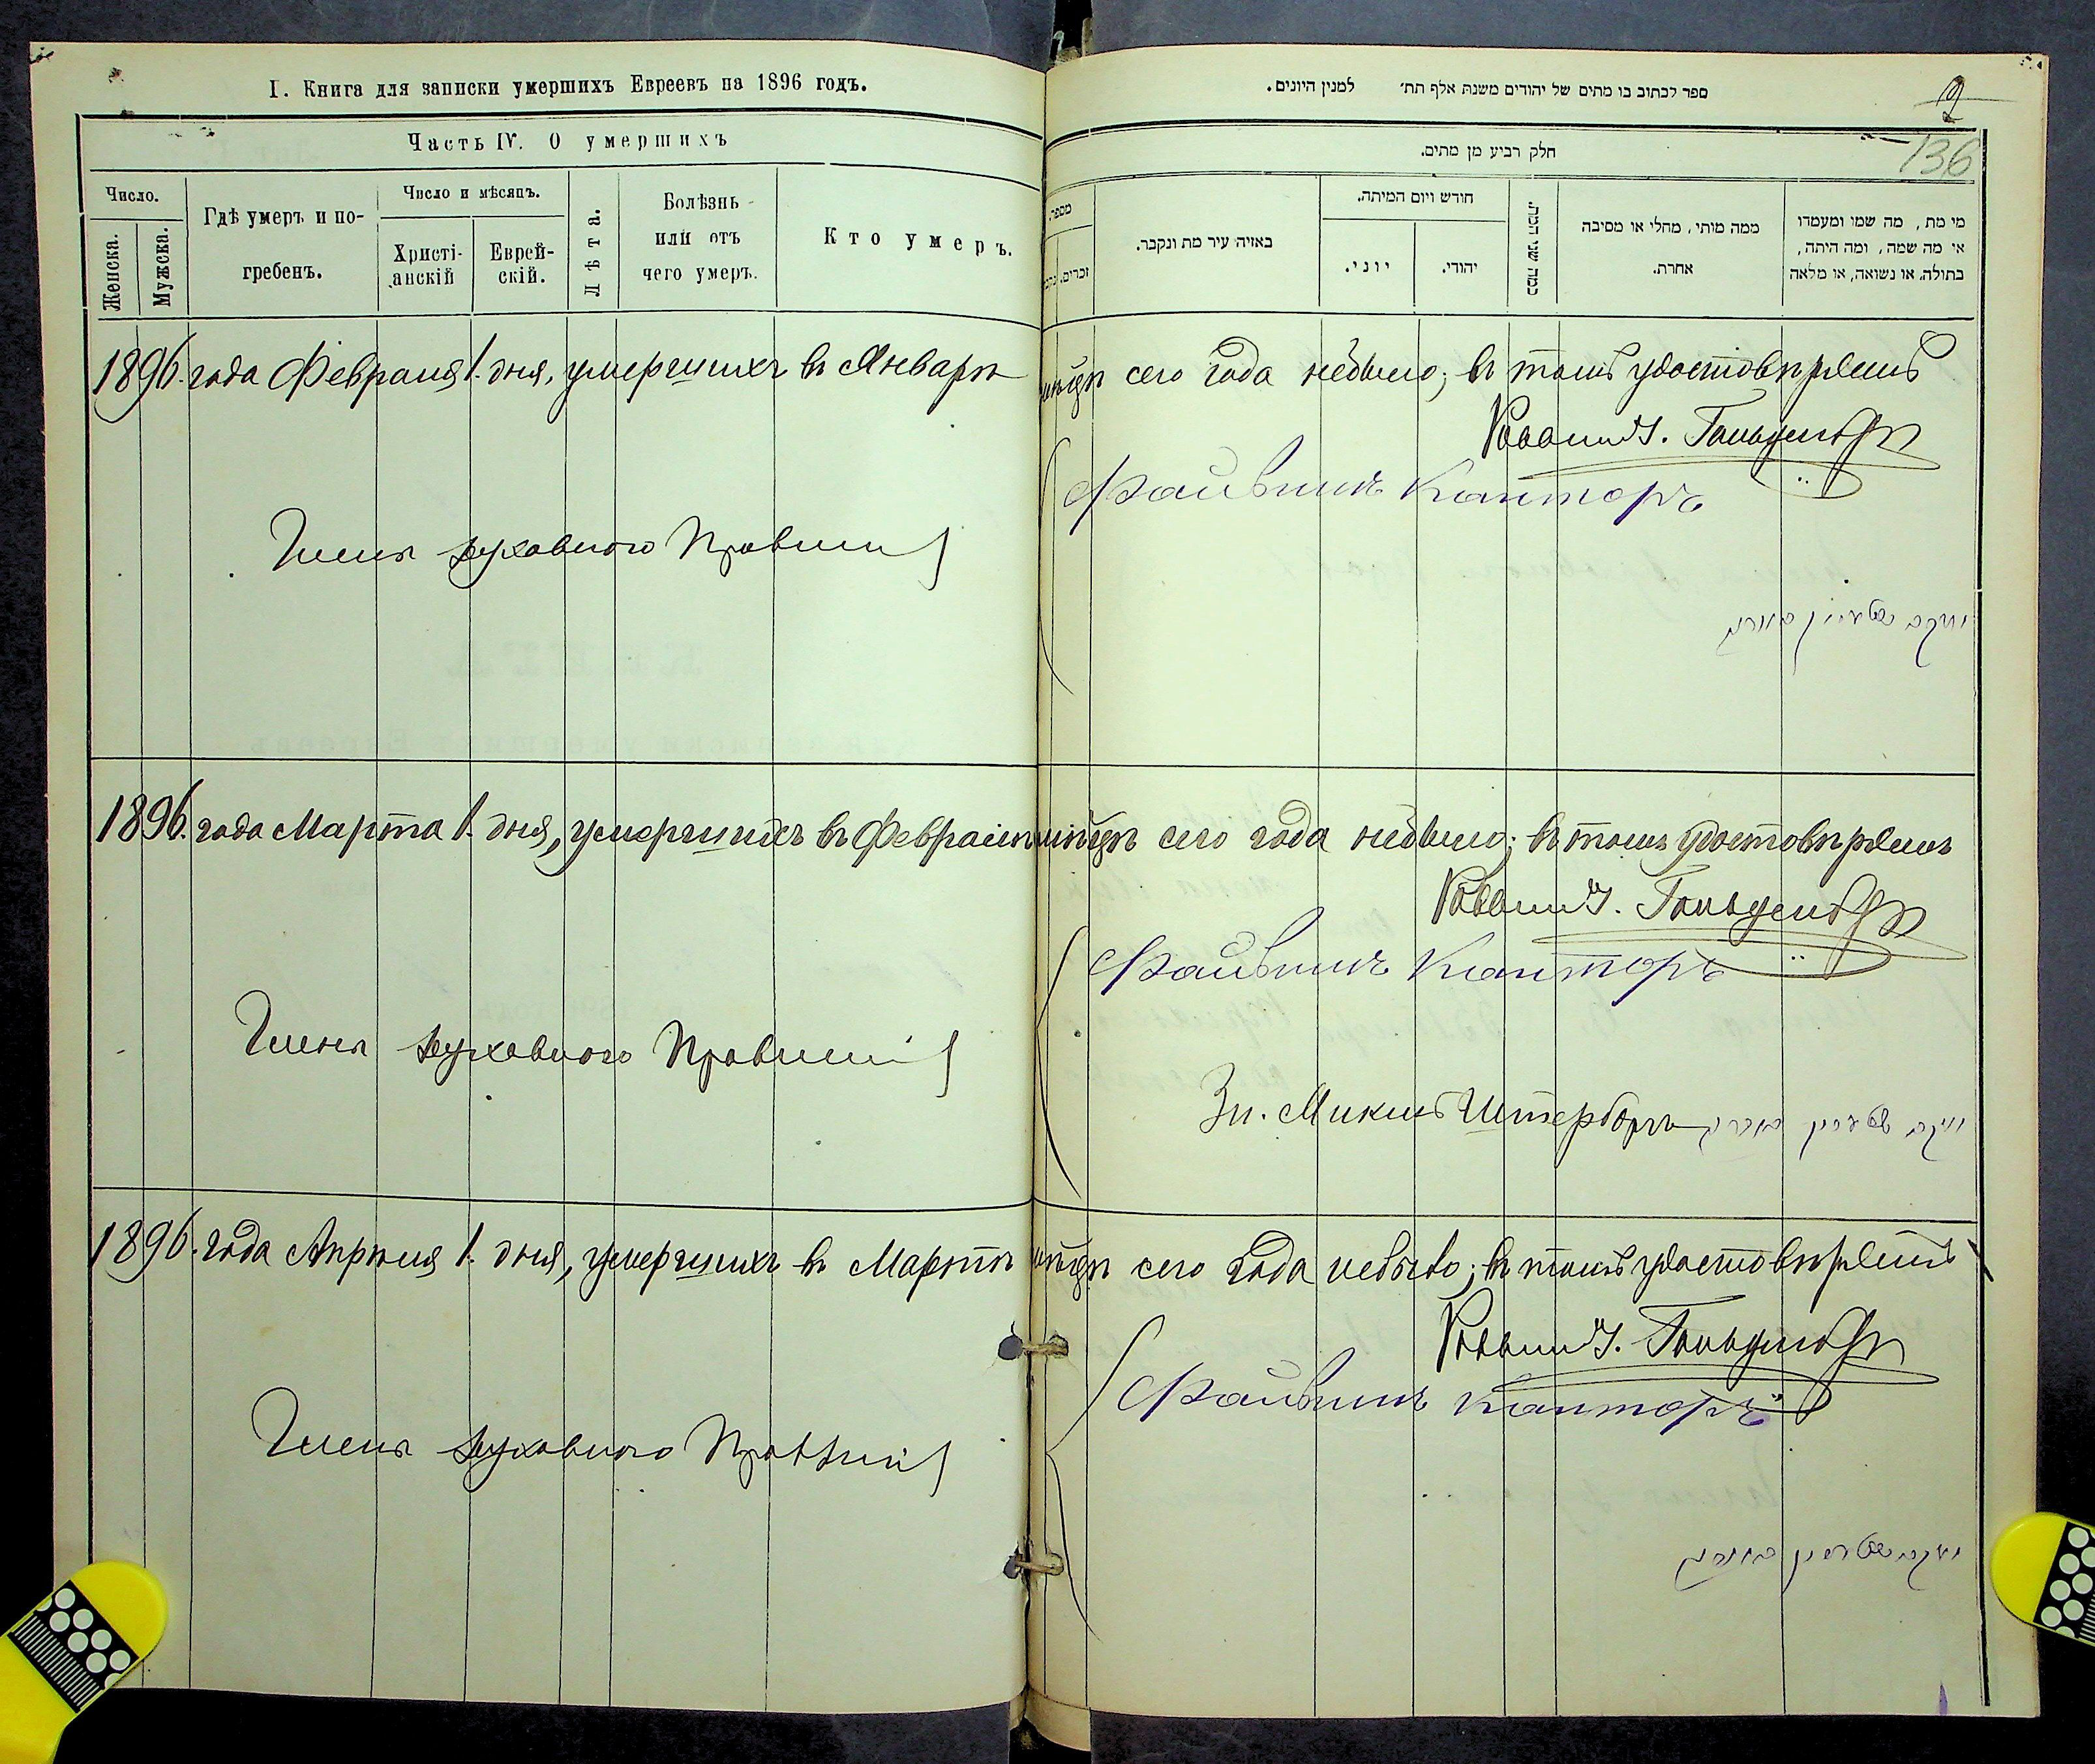 I. Книга для записки умершихъ Евреевъ на 1896 годъ.
Часть IV. О умершихъ
Число.
Женска.
Мужска.
Гдѣ умеръ и по-
гребенъ.
Число и мѣсяцъ.
Христі-
анскій
Еврей-
скій.
Лѣта.
Болѣзнь
или отъ
чего умеръ.
Кто умеръ.
1896. года Февраля 1. дня, умершихъ въ Январѣ
Члены духовного Правленія
1896. года Марта 1. дня, умершихъ въ Февралѣ
Члены духовного Правленія
1896. года Апрѣля 1. дня, умершихъ въ Мартѣ
Члены духовного Правленія
ספר לכתוב בו מתים של יהודים משנת אלף תת׳ למנין היונים.
2
136
חלק רביע מן מתים.
מספר.
זכרים.
באיזה עיר מת ונקבר.
חודש ויום המיתה.
יוני.
יהודי.
כמה שני המת.
ממה מותי, מחלי או מסיבה
אחרת.
מי מת, מה שמו ומעמדו
אי מה שמה, ומה היתה,
בתולה, או נשואה, או מלאה
мѣсяцѣ сего года небыло; въ томъ удостовѣряемъ
Раввинъ Гольденбергъ
Файвишъ Канторъ
мѣсяцѣ сего года небыло; въ томъ удостовѣряемъ
Раввинъ Гольденбергъ
Файвишъ Канторъ
Штернборгъ
мѣсяцѣ сего года небыло; въ томъ удостовѣряемъ
Раввинъ Гольденбергъ
Файвишъ Канторъ